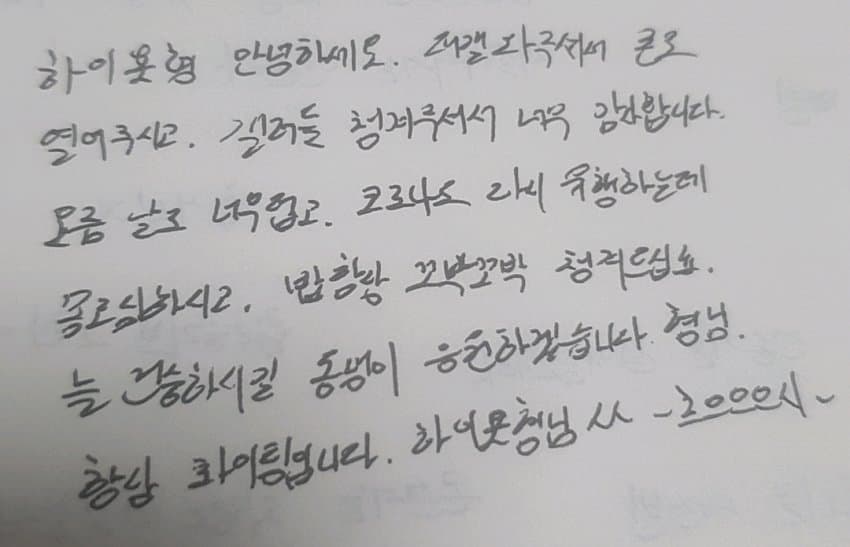 하이욧형 안녕하세요. 디갤와주셔서 큰도
열어주시고. 길러들 청겨주셔서 너무 감사합니다.
요즘 날도 너무덥고. 코로나도 다시 유행하는데
몸조심하시고. 밥항상 꼬박꼬박 청겨드십쇼.
늘 건승하시길 동생이 응원하겠습니다. 형님.
항상 화이팅입니다. 하이욧형님